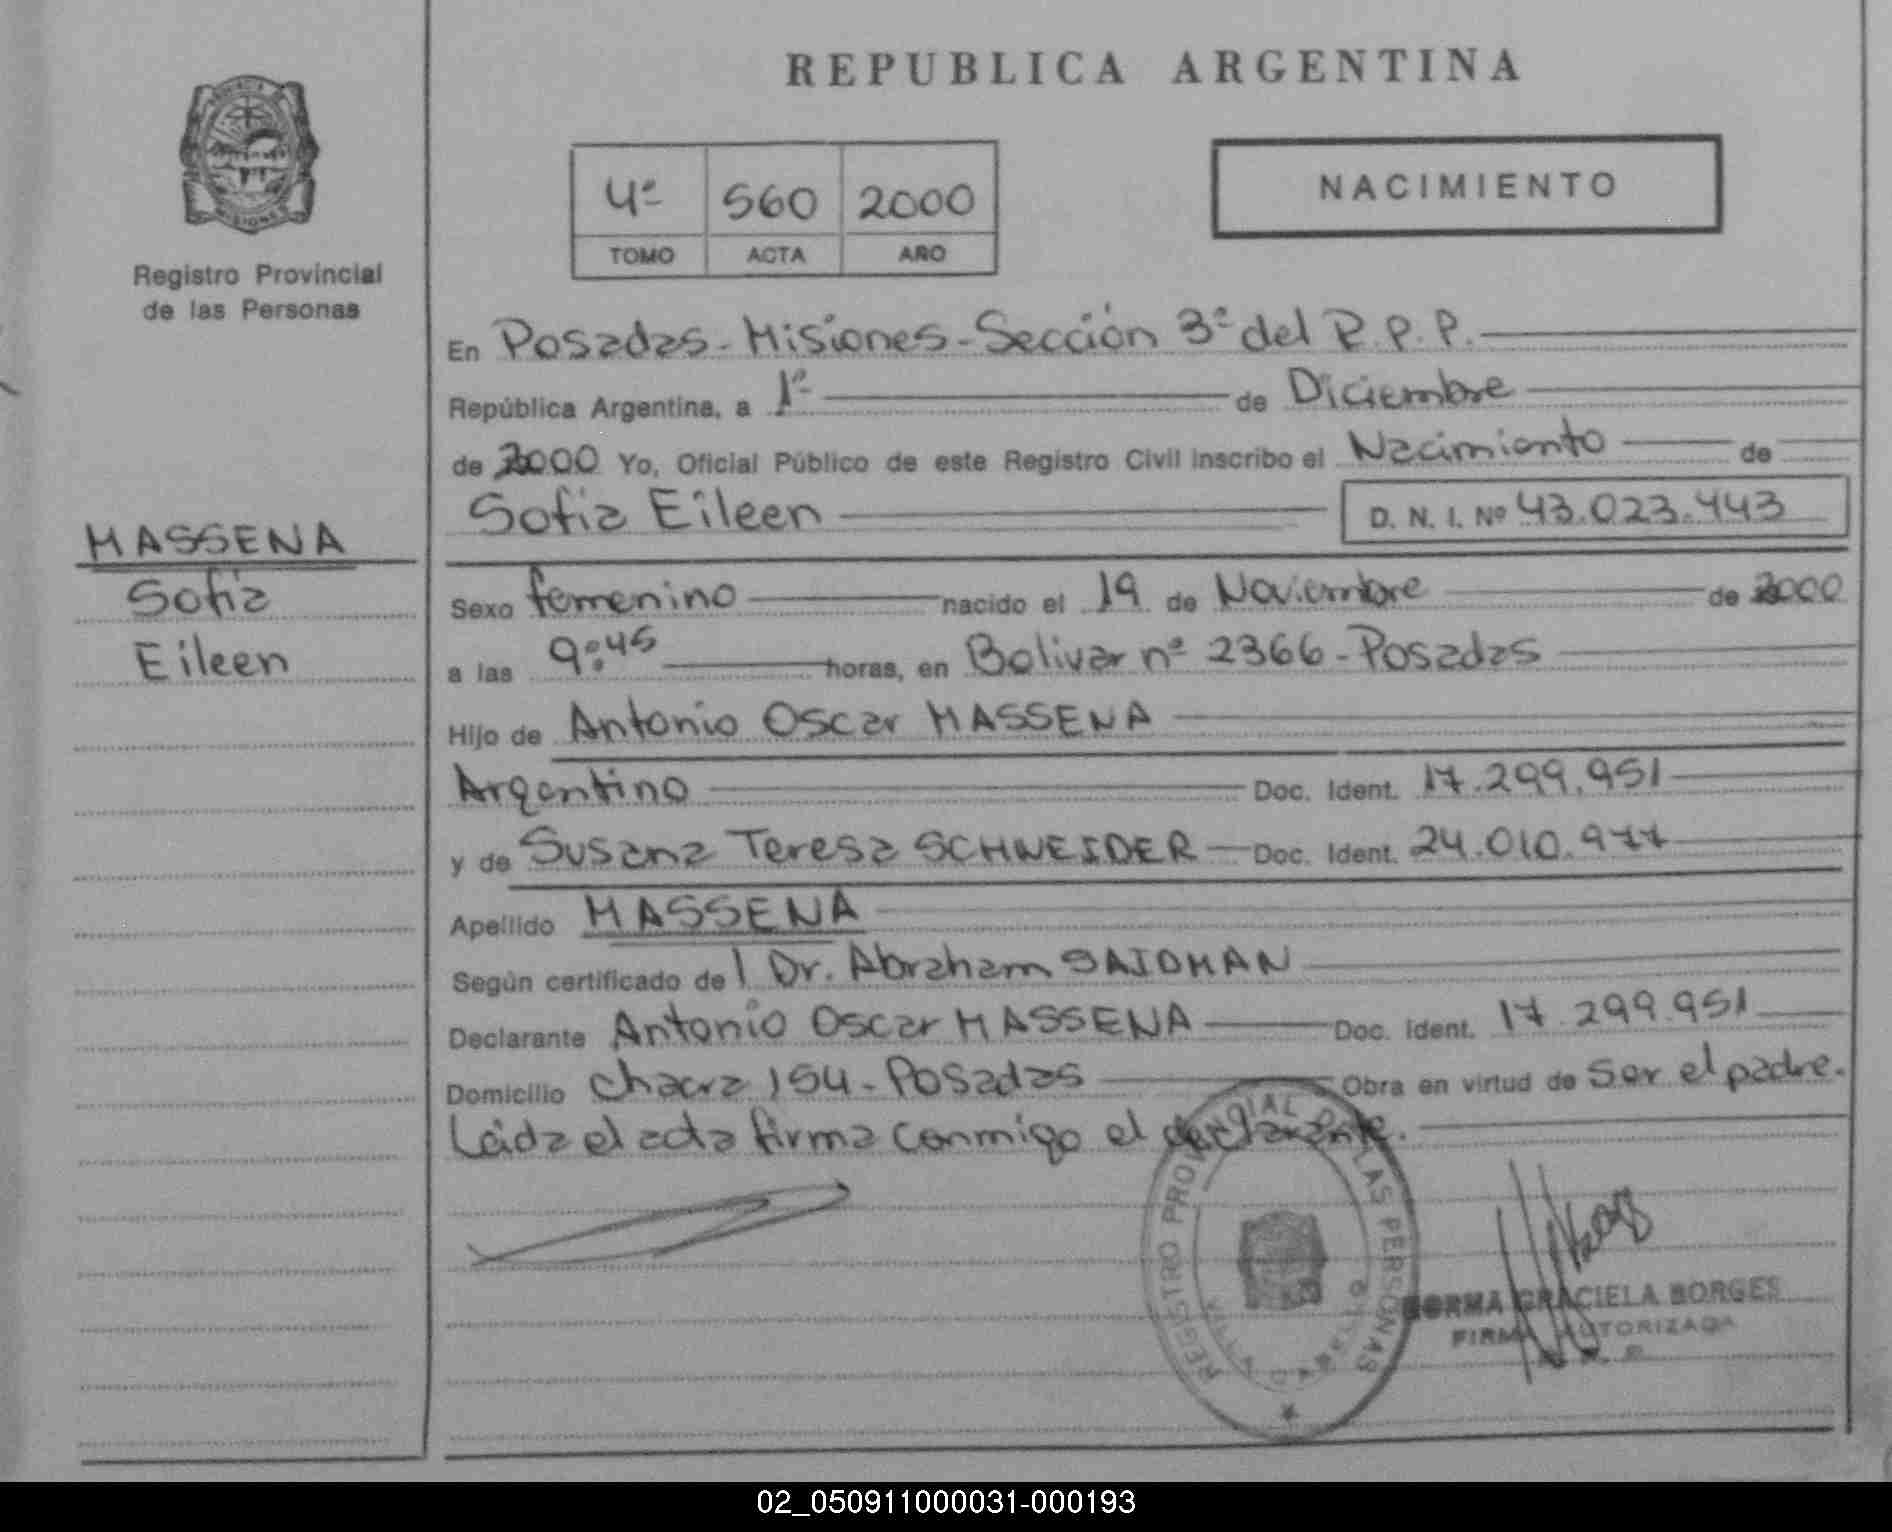 REPUBLICA ARGENTINA
4º 560 2000
TOMO ACTA AÑO
NACIMIENTO
MISIONES
Registro Provincial
de las Personas
En Posadas - Misiones - Sección 3ª del R.P.P.
República Argentina, a 1º de Diciembre
de 2000 Yo, Oficial Público de este Registro Civil inscribo el Nacimiento de
Sofia Eileen D. N. I. Nº 43.023.443
MASSENA
Sofia
Eileen
Sexo femenino nacido el 19 de Noviembre de 2000
a las 9:45 horas, en Bolivar nº 2366 - Posadas
Hijo de Antonio Oscar MASSENA
Argentino Doc. Ident. 17.299.951
y de Susana Teresa SCHNEIDER Doc. Ident. 24.010.977
Apellido MASSENA
Según certificado de l Dr. Abraham SAIDMAN
Declarante Antonio Oscar MASSENA Doc. Ident. 17.299.951
Domicilio Chacra 154 - Posadas Obra en virtud de Ser el padre.
Leída el acta firma conmigo el declarante.
REGISTRO PROVINCIAL DE LAS PERSONAS
VILLA CABELLO
NORMA GRACIELA BORGES
FIRMA AUTORIZADA
02_050911000031-000193